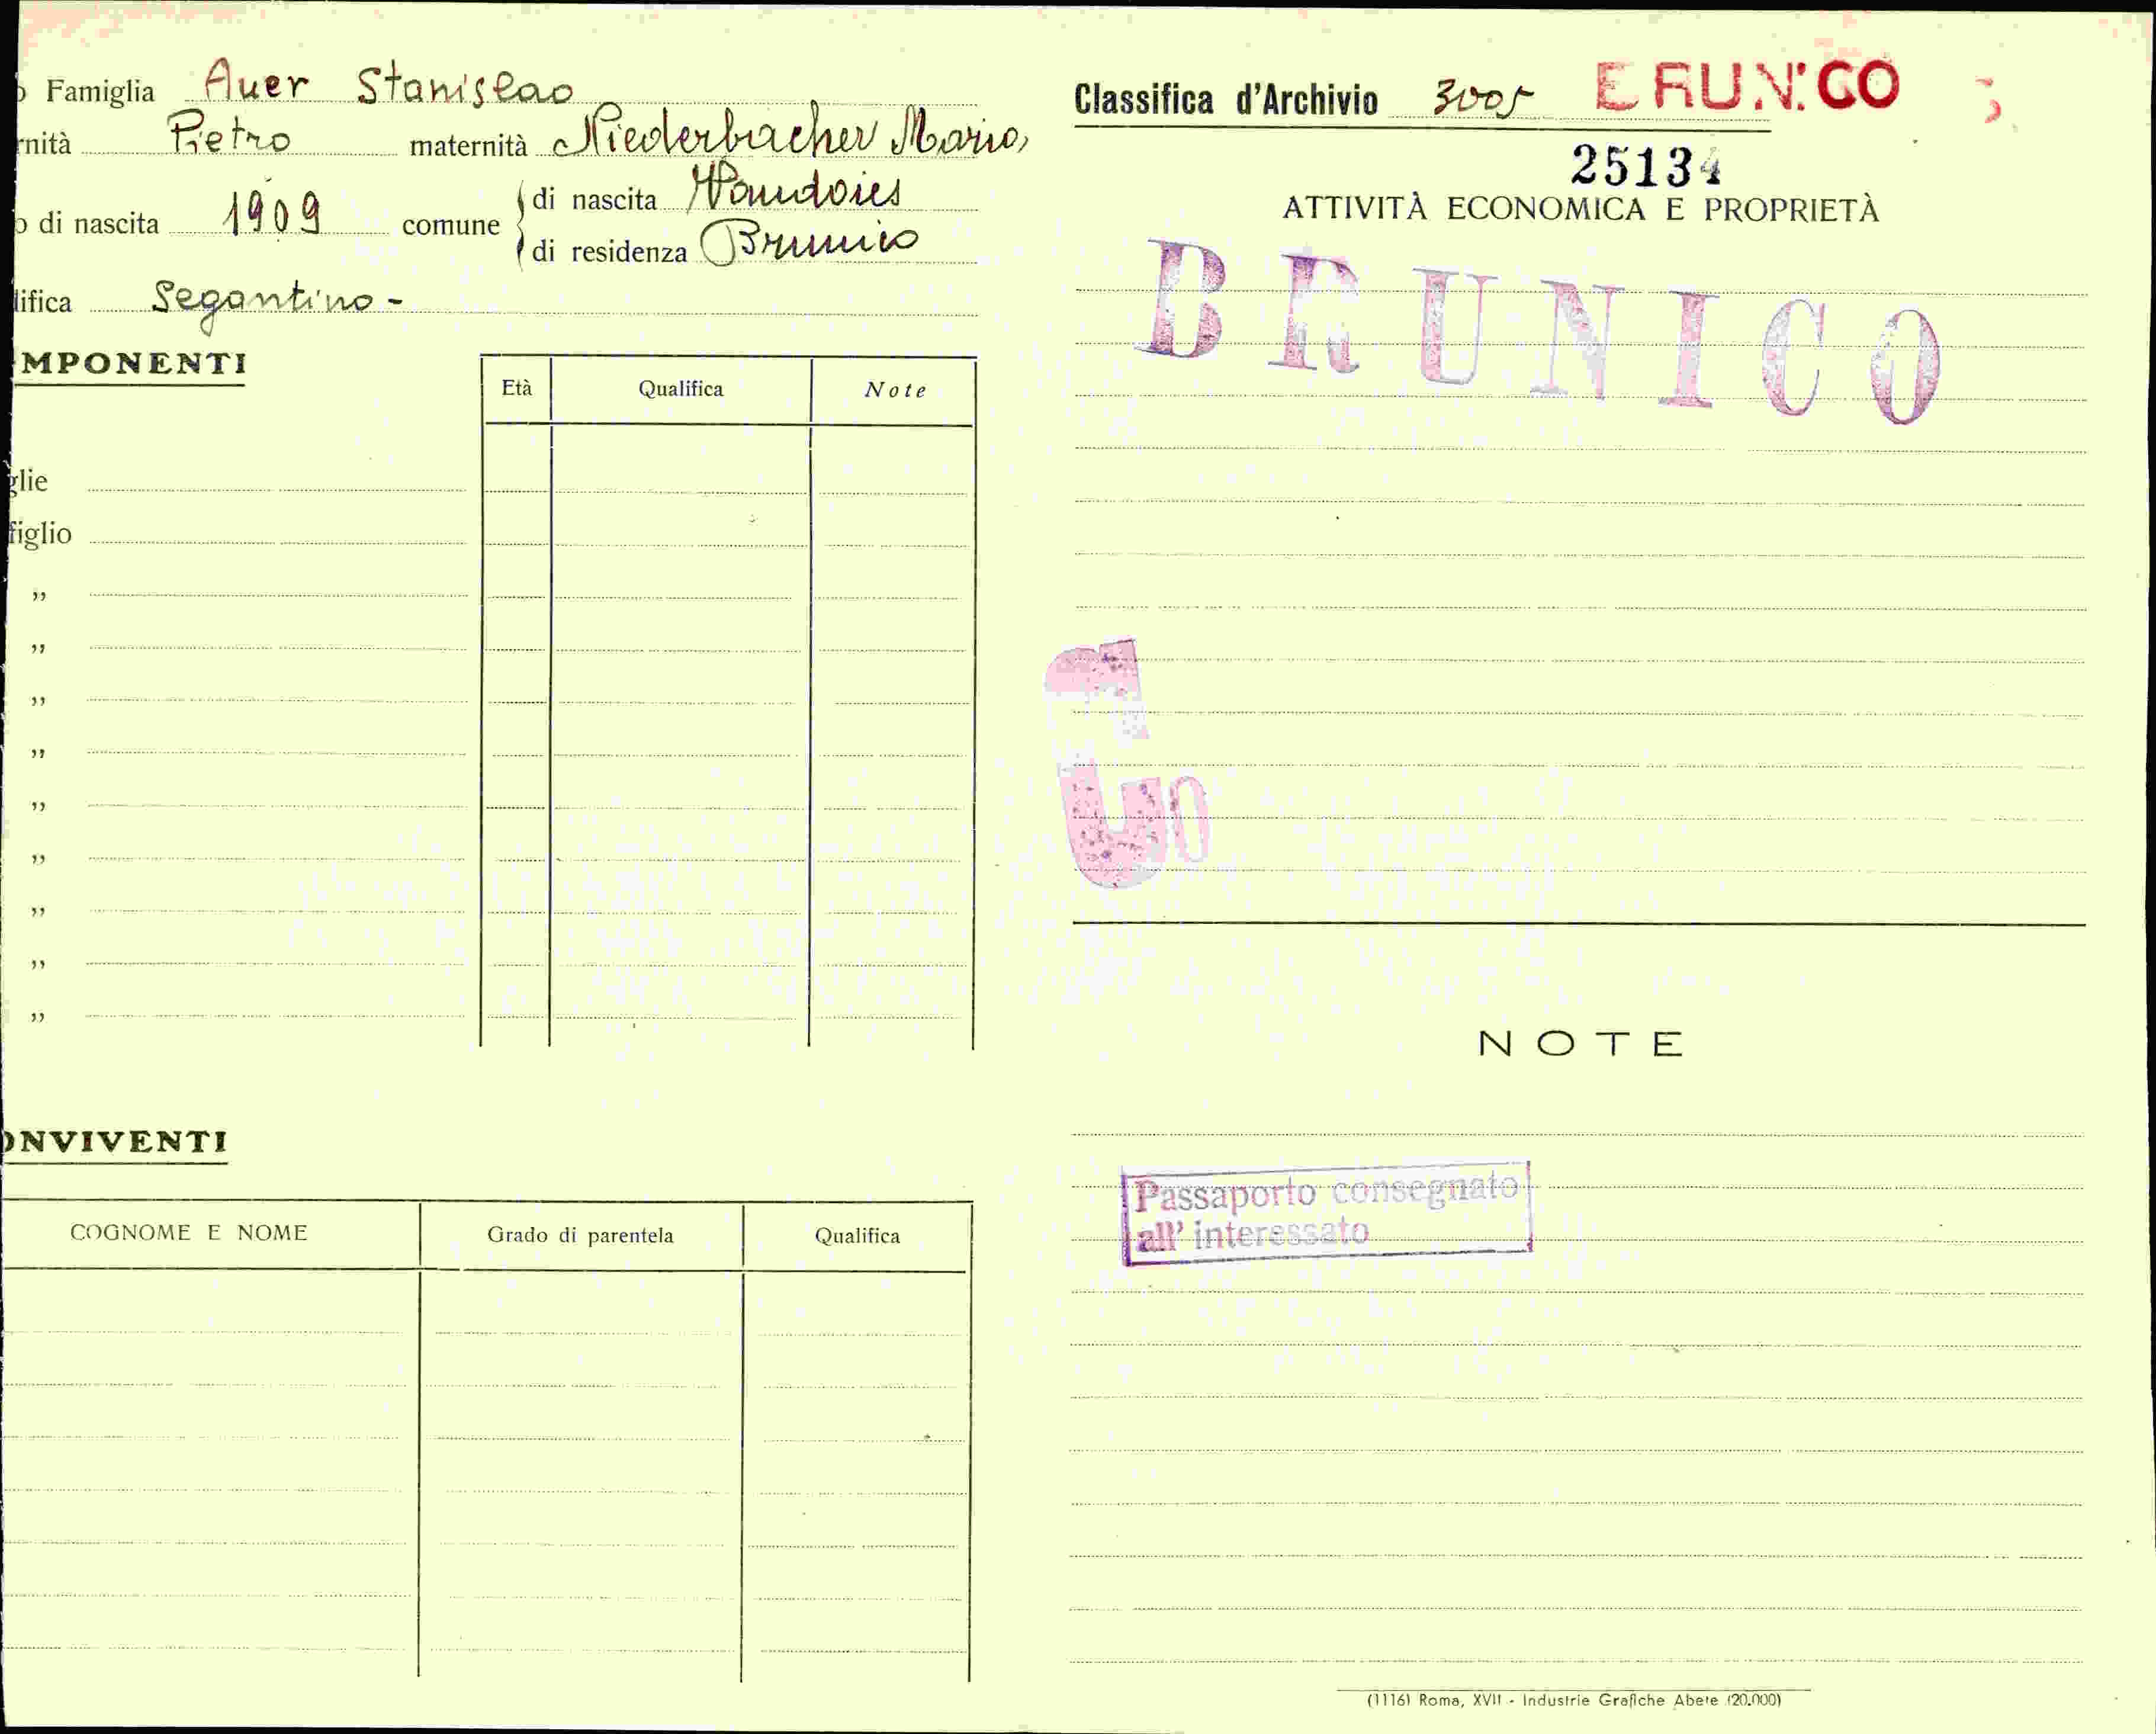 Famiglia Auer Stanislao
rnità Pietro maternità Niederbacher Maria
o di nascita 1909 comune di nascita Vandoies
di residenza Brunico
lifica Segantino -
MPONENTI
Età Qualifica Note
glie
figlio
"
"
"
"
"
"
"
"
"
ONVIVENTI
COGNOME E NOME Grado di parentela Qualifica
Classifica d'Archivio 3005 BRUNICO
25134
ATTIVITÀ ECONOMICA E PROPRIETÀ
BRUNICO
NOTE
Passaporto consegnato
all' interessato
(1116) Roma, XVII - Industrie Grafiche Abete (20.000)